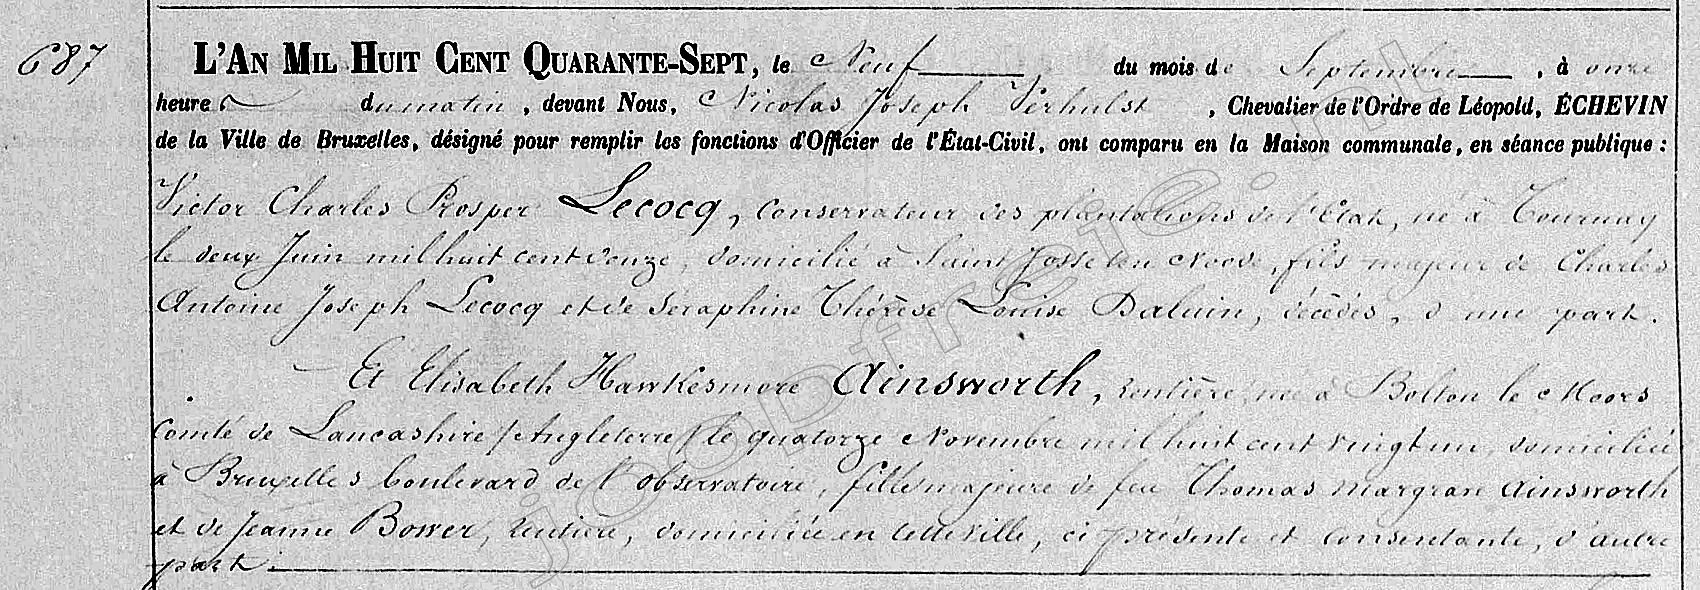 687
L'AN MIL HUIT CENT QUARANTE-SEPT, le Neuf du mois de Septembre, à onze
heures du matin, devant Nous, Nicolas Joseph Verhulst, Chevalier de l'Ordre de Léopold, ÉCHEVIN
de la Ville de Bruxelles, désigné pour remplir les fonctions d'Officier de l'État-Civil, ont comparu en la Maison communale, en séance publique :
Victor Charles Prosper Lecocq, conservateur des plantations de l'Etat, né à Tournay
le deux Juin mil huit cent douze, domicilié à Saint Josse ten Noode, fils majeur de Charles
Antoine Joseph Lecocq et de Seraphine Thérèse Louise Daluin, décédés, d'une part.
Et Elisabeth Hawkesmore Ainsworth, rentière, née à Bolton le Moors
Comté de Lancashire /Angleterre/ le quatorze Novembre mil huit cent vingt un, domiciliée
à Bruxelles boulevard de l'observatoire, fille majeure de feu Thomas Margrave Ainsworth
et de Jeanne Bower, rentière, domiciliée en cette ville, ci présente et consentante, d'autre
part.